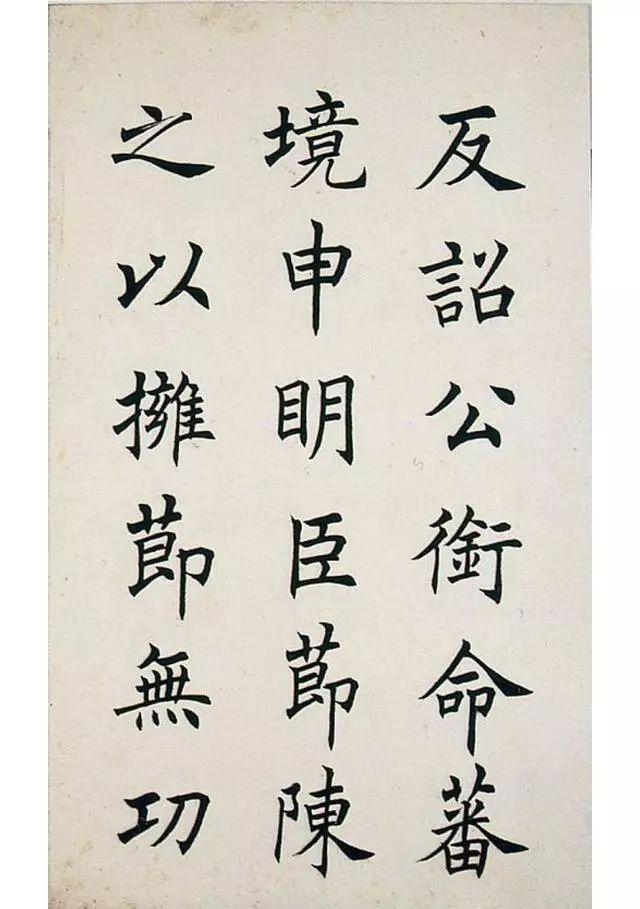 反詔公銜命蕃
境申明臣莭陳
之以擁莭無功